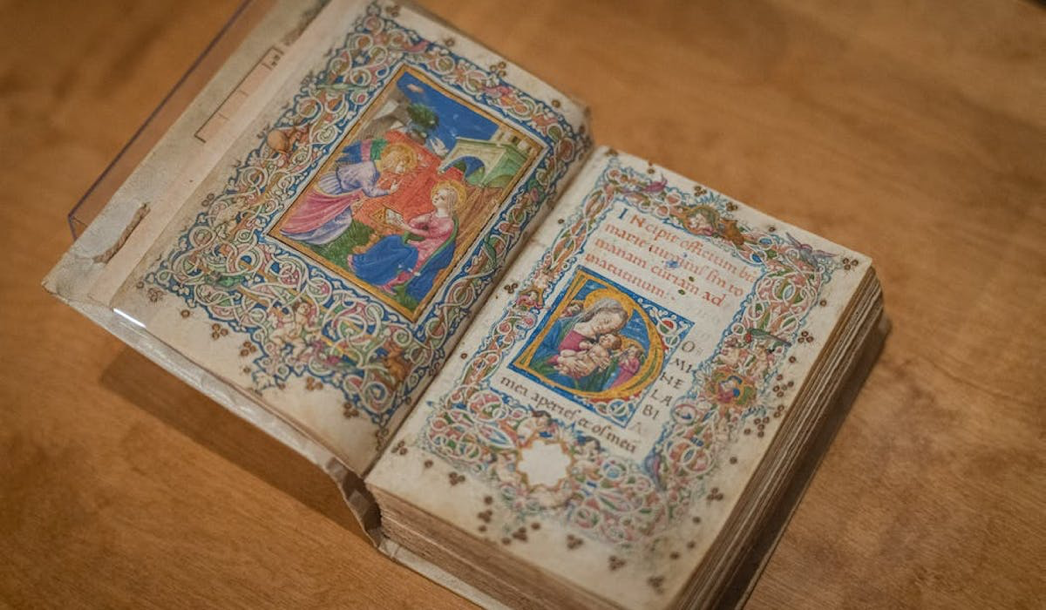 INcipit offitium be
marie uirginis sm ro
manam curiam ad
matutinum
DO
MI
NE
LA
BI
A
mea aperies et os meu